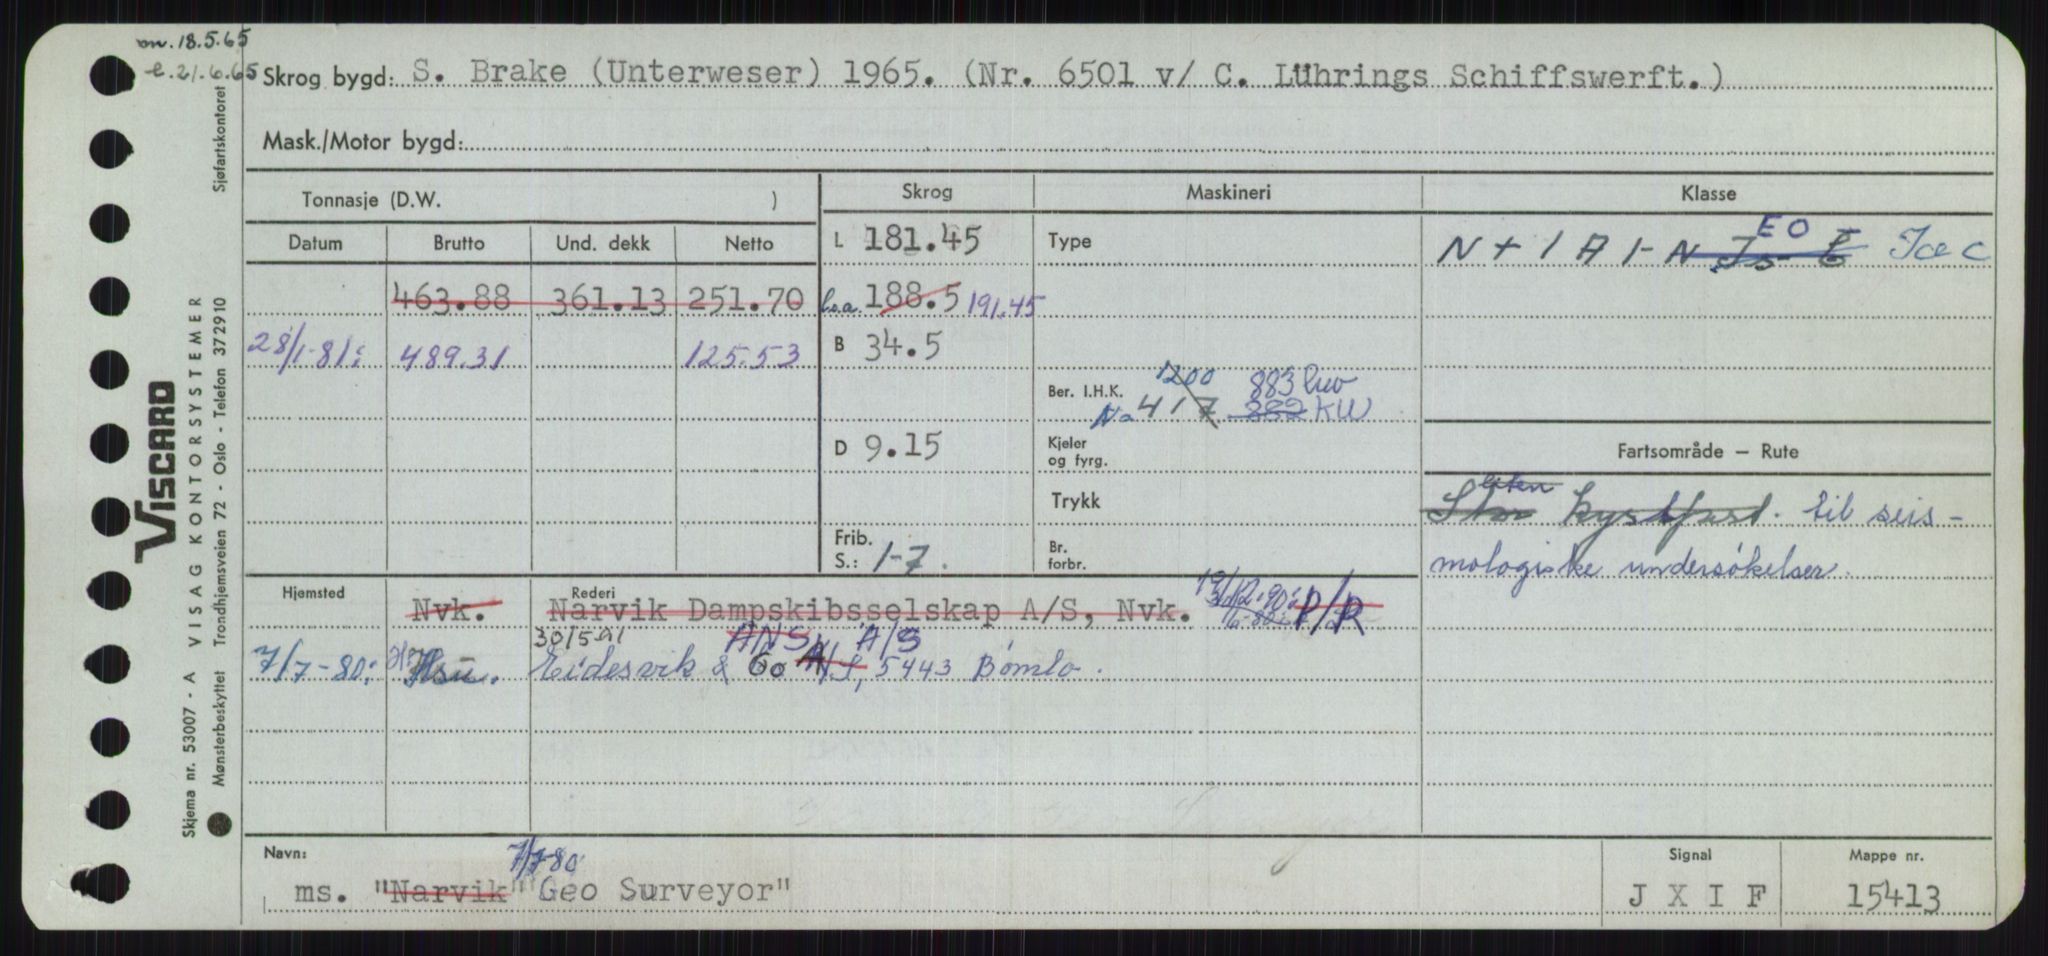 on. 18.5.65
e. 21.6.65
Skrog bygd: S. Brake (Unterweser) 1965. (Nr. 6501 v/ C. Lührings Schiffswerft.)
Mask./Motor bygd:
Tonnasje (D.W. )
Skrog Maskineri Klasse
Datum Brutto Und. dekk Netto
L 181.45 Type
N + 1 A 1 - EO Ice C
463.88 361.13 251.70
l.o.a. 188.5 191.45
28/1-81: 489.31 125.53
B 34.5
Ber. I.H.K. 1200 883 kW
No 417 882 KW
D 9.15
Kjeler
og fyrg.
Fartsområde — Rute
Trykk
Stor liten kystfart. til seis-
mologiske undersøkelser.
Frib.
S.: 1-7.
Br.
forbr.
Hjemsted
Rederi
Nvk. Narvik Dampskibsselskap A/S, Nvk. P/R
30/5 91 ANS. A/S
7/7-80: Hsu. Eidesvik & Co A/S, 5443 Bømlo.
Navn:
7/7-80
ms. "Narvik" "Geo Surveyor"
Signal
J X I F
Mappe nr.
15413
VISCARD
Skjema nr. 53007 - A VISAG KONTORSYSTEMER
Mønsterbeskyttet Trondhjemsveien 72 - Oslo - Telefon 372910 Sjøfartskontoret